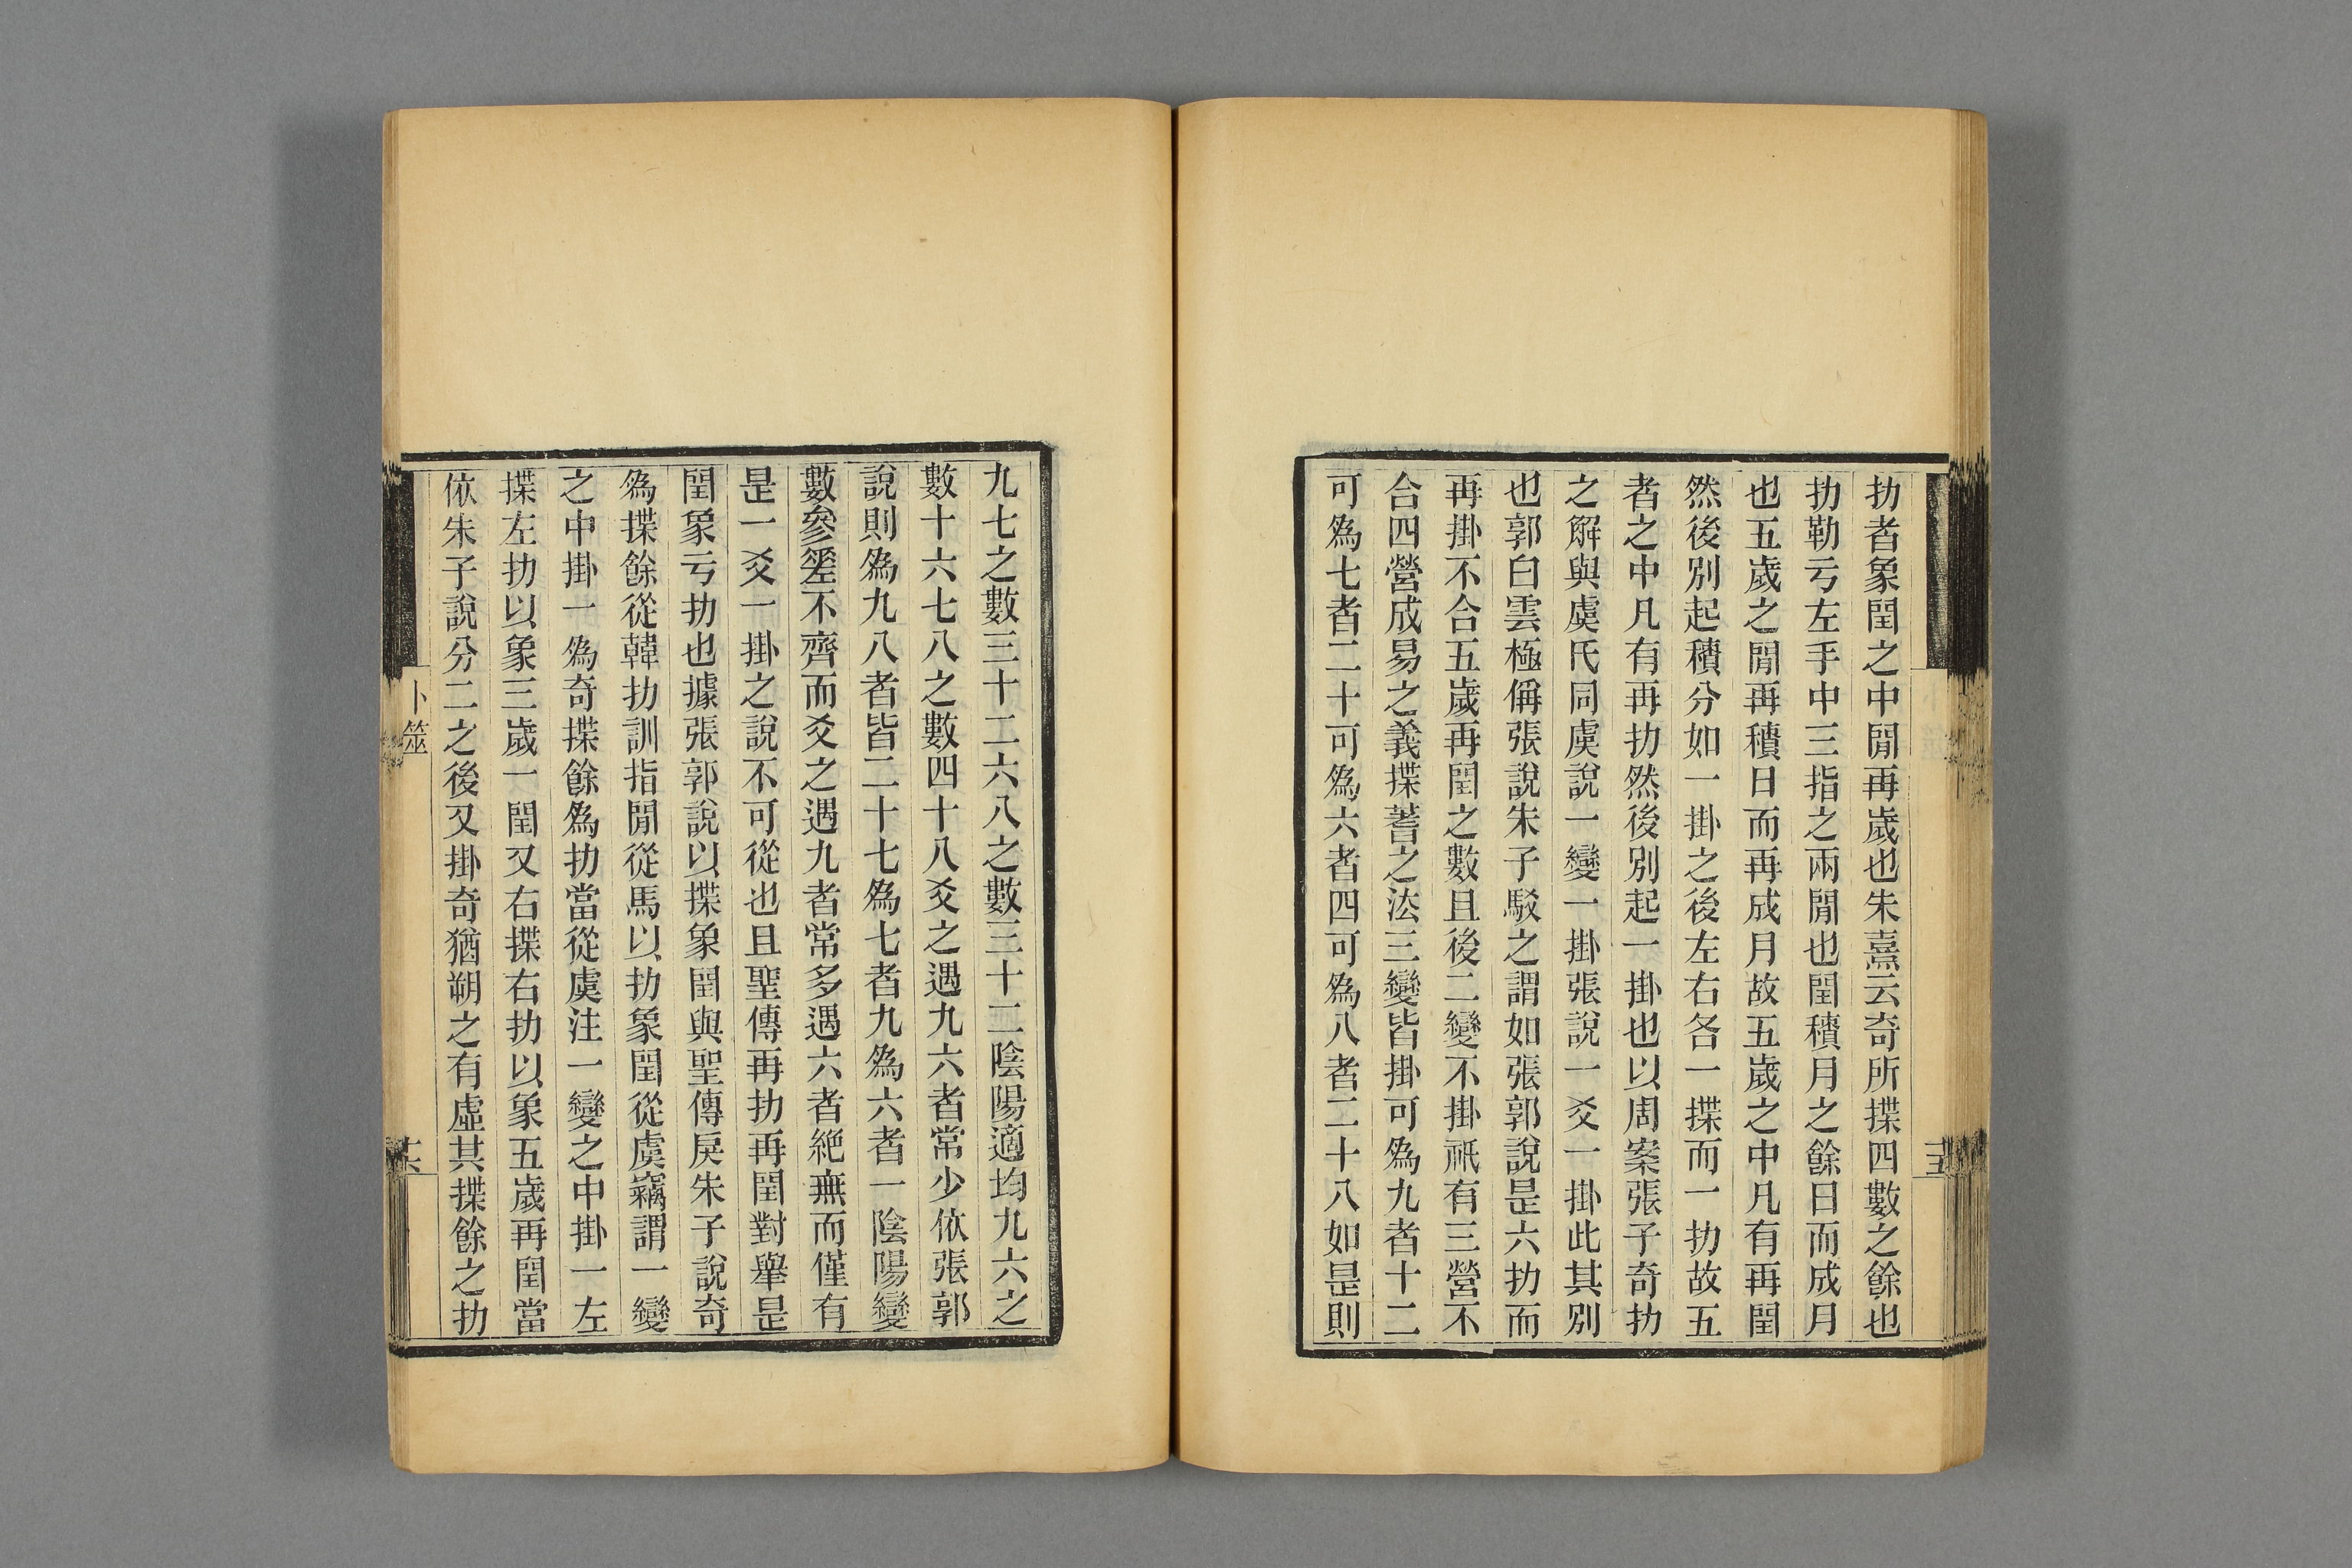 扐者象閏之中閒再歲也朱熹云奇所揲四數之餘也
扐勒亏左手中三指之兩閒也閏積月之餘日而成月
也五歲之閒再積日而再成月故五歲之中凡有再閏
然後別起積分如一掛之後左右各一揲而一扐故五
者之中凡有再扐然後別起一掛也以周案張子奇扐
之解與虞氏同虞說一變一掛張說一爻一掛此其別
也郭白雲極偁張說朱子駁之謂如張郭說是六扐而
再掛不合五歲再閏之數且後二變不掛祇有三營不
合四營成易之義揲蓍之法三變皆掛可爲九者十二
可爲七者二十可爲六者四可爲八者二十八如是則
十五
九七之數三十二六八之數三十二陰陽適均九六之
數十六七八之數四十八爻之遇九六者常少依張郭
說則爲九八者皆二十七爲七者九爲六者一陰陽變
數參差不齊而爻之遇九者常多遇六者絶無而僅有
是一爻一掛之說不可從也且聖傳再扐再閏對舉是
閏象亏扐也據張郭說以揲象閏與聖傳戾朱子說奇
爲揲餘從韓扐訓指閒從馬以扐象閏從虞竊謂一變
之中掛一爲奇揲餘爲扐當從虞注一變之中掛一左
揲左扐以象三歲一閏又右揲右扐以象五歲再閏當
依朱子說分二之後又掛奇猶朔之有虛其揲餘之扐
卜筮